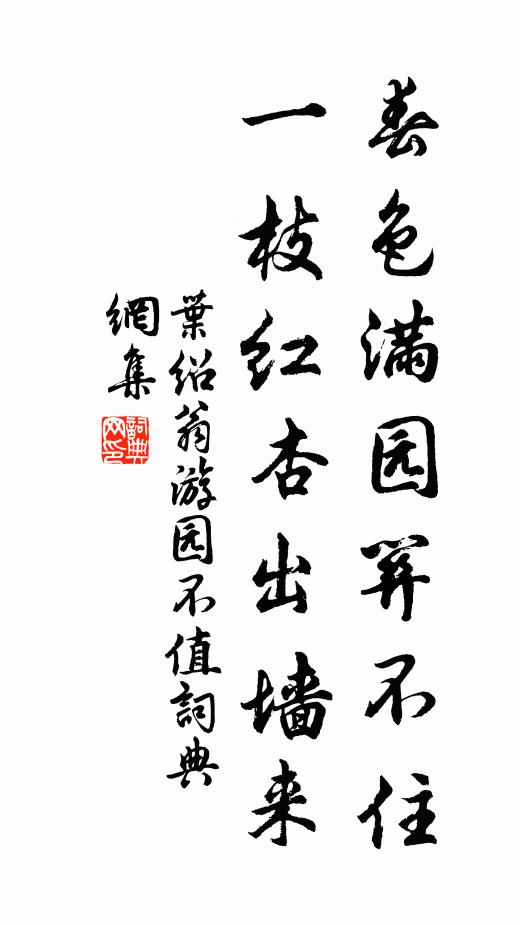 春色满园关不住
一枝红杏出墙来
葉绍翁游园不值詞典
網集
詞典网印